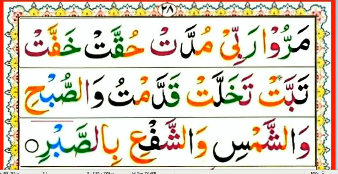 ٢٨
مَرُّوْا رَبِّيْ مُدَّتْ حُقَّتْ خَفَّتْ
تَبَّتْ تَخَلَّتْ قَدَّمْتُ وَالصُّبْحِ
وَالشَّمْسِ وَالشَّفْعِ بِالصَّبْرِ